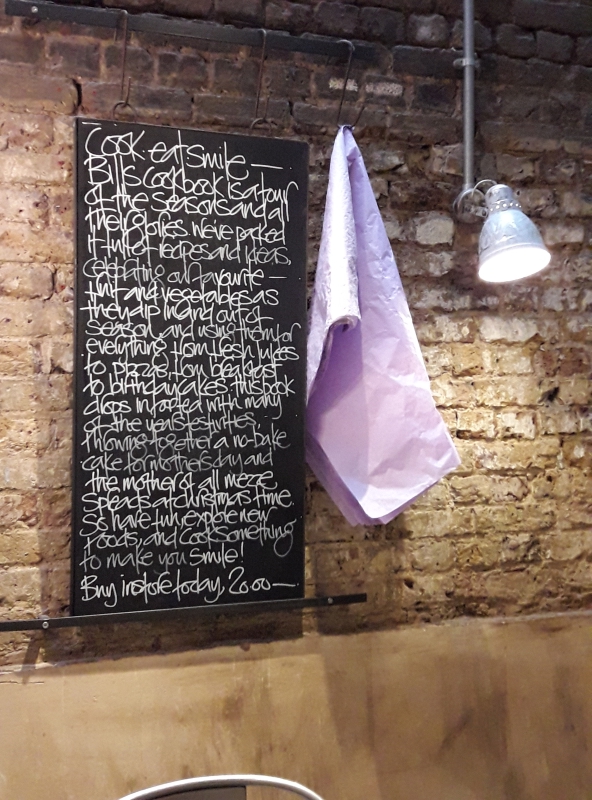 Cook eat Smile —
Bill's cookbook is a tour
of the seasons and all
their glories we've packed
it full of recipes and ideas,
celebrating our favourite —
fruit and vegetables as
they dip in and out of
season, and using them for
everything from fresh juices
to pizzas, from breakfast
to birthday cakes. this book
drops in to
of the years festivities,
throwing together a no-bake
cake for mothers day and
the mother of all meze
spreads at christmas time.
So have fun, explore new
foods, and cook something
to make you smile!
Buy instore today, 20.00 —